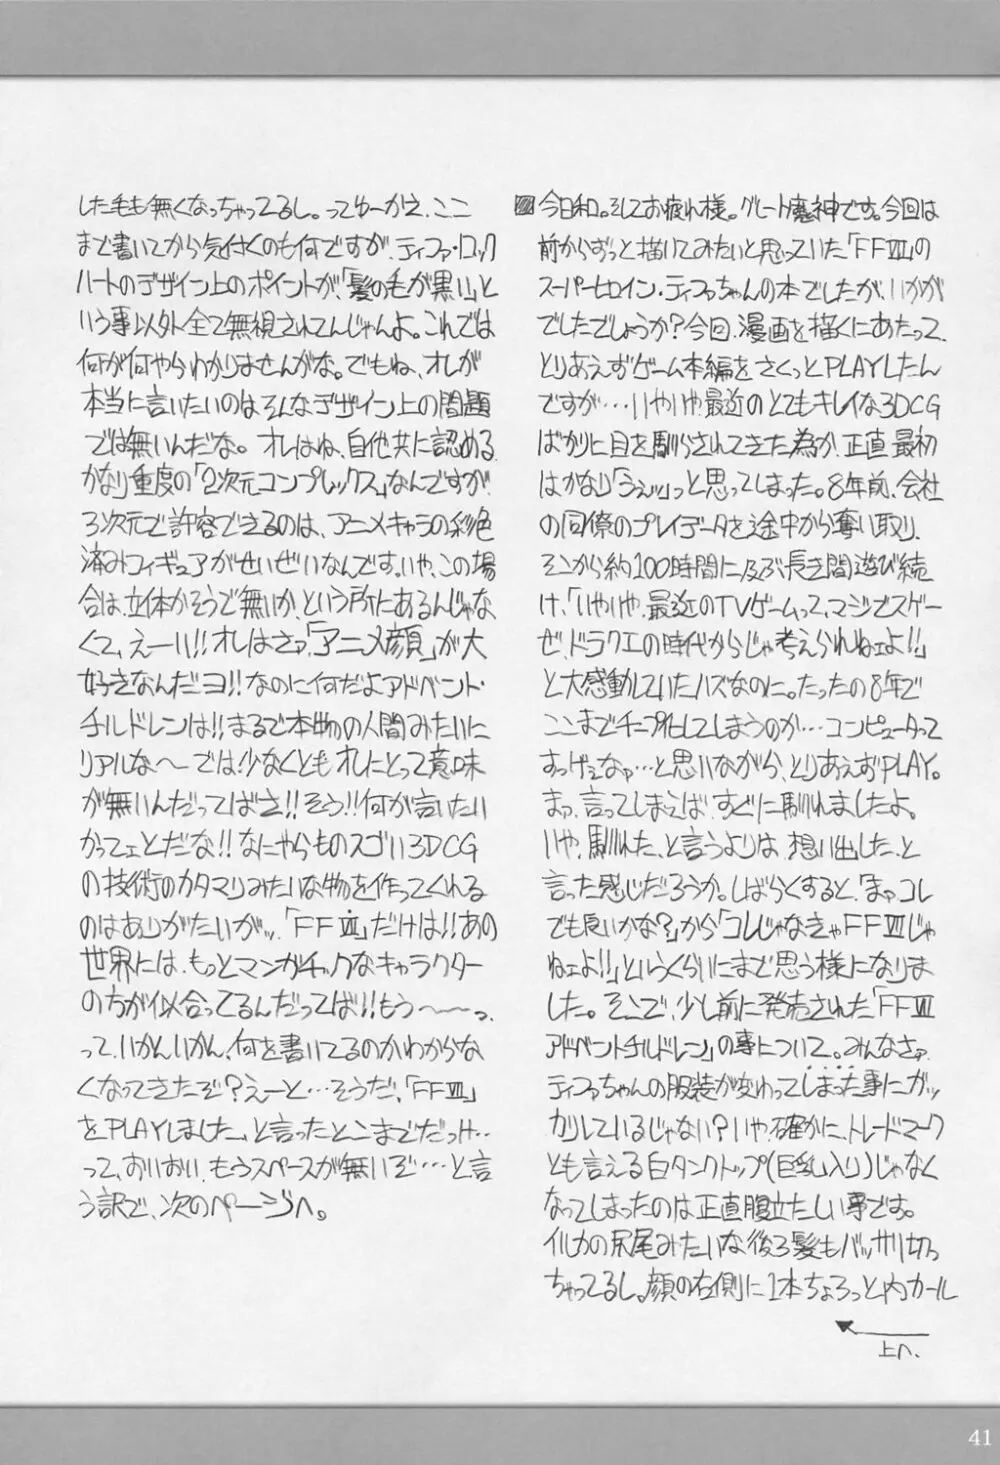 今日和。そしてお疲れ様。グレート魔神です。今回は
前からずっと描いてみたいと思っていた「FFⅦ」の
スーパーヒロイン・ティファちゃんの本でしたが、いかが
でしたでしょうか?今回、漫画を描くにあたって、
とりあえずゲーム本編をさくっとPLAYしたん
ですが…いやいや、最近のとてもキレイな3DCG
ばかりに目を馴らされてきた為か、正直、最初
はかなり「うえッ」っと思ってしまった。8年前、会社
の同僚のプレイデータを途中から奪い取り、
そこから約100時間に及ぶ長き間遊び続
け、「いやいや、最近のTVゲームって、マジでスゲー
ぜ、ドラクエの時代からじゃ考えられねェよ!!」
と大感動していたハズなのに。たったの8年で
ここまでチープ化してしまうのか…コンピュータって
すっげぇなァ…と思いながら、とりあえずPLAY。
まァ、言ってしまえば、すぐに馴れましたよ。
いや、馴れた、と言うよりは、想い出した、と
言った感じだろうか。しばらくすると、「まァコレ
でも良いかな?」から「コレじゃなきゃFFⅦじゃ
ねェよ!!」というくらいにまで思う様になりま
した。そこで、少し前に発売された「FFⅦ
アドベントチルドレン」の事について。みんなさァ、
ティファちゃんの服装が変わってしまった事にガッ
カリしているじゃない?いや、確かに、トレードマーク
とも言える白タンクトップ(巨乳入り)じゃなく
なってしまったのは正直腹立たしい事です。
イルカの尻尾みたいな後ろ髪もバッサリ切っ
ちゃってるし。顔の右側に1本ちょろっと内カール
上へ.
した毛も無くなっちゃってるし。ってゆーかえ、ここ
まで書いてから気付くのも何ですが、ティファ・ロック
ハートのデザイン上のポイントが、「髪の毛が黒い」と
いう事以外全て無視されてんじゃんよ。これでは
何が何やらわかりませんがな。でもね、オレが
本当に言いたいのはそんなデザイン上の問題
では無いんだな。オレはね、自他共に認める、
かなり重度の「2次元コンプレックス」なんですが、
3次元で許容できるのは、アニメキャラの彩色
済みフィギュアがせいぜいなんです。いや、この場
合は、立体かそうで無いか、という所にあるんじゃな
くて、えーい!!オレはさァ、「アニメ顔」が大
好きなんだヨ!!なのに何だよアドベント・
チルドレンは!!まるで本物の人間みたいに
リアルな〜では、少なくともオレにとって意味
が無いんだってばさ!!そう!!何が言いたい
かってェとだな!!なにやらものスゴい3DCG
の技術のカタマリみたいな物を作ってくれる
のはありがたいがッ、「FFⅦ」だけは!!あの
世界には、もっとマンガチックなキャラクター
の方が似合ってるんだってば!!もう〜〜っ、
って、いかんいかん、何を書いてるのかわからな
くなってきたぞ?えーと…そうだ、「FFⅦ」
をPLAYしました、と言ったとこまでだっけ…
って、おいおい、もうスペースが無いぞ…と言
う訳で、次のページへ。
41